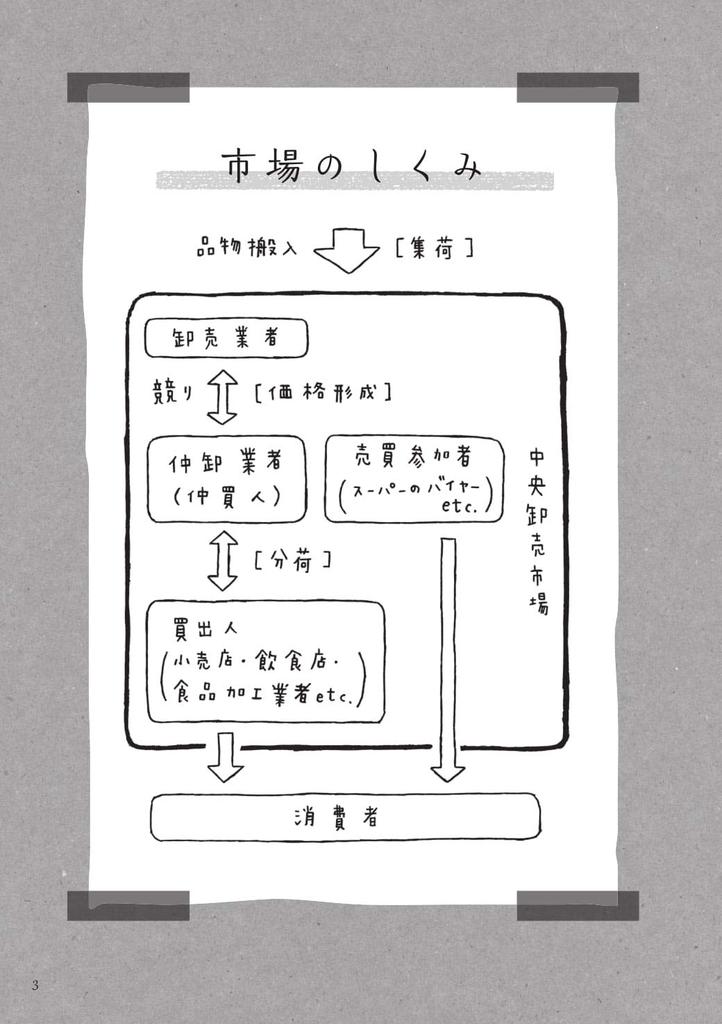 市場のしくみ
品物搬入
[集荷]
卸売業者
競り
[価格形成]
仲卸業者
(仲買人)
売買参加者
(スーパーのバイヤー
etc.)
中央卸売市場
[分荷]
買出人
(小売店・飲食店・
食品加工業者etc.)
消費者
3